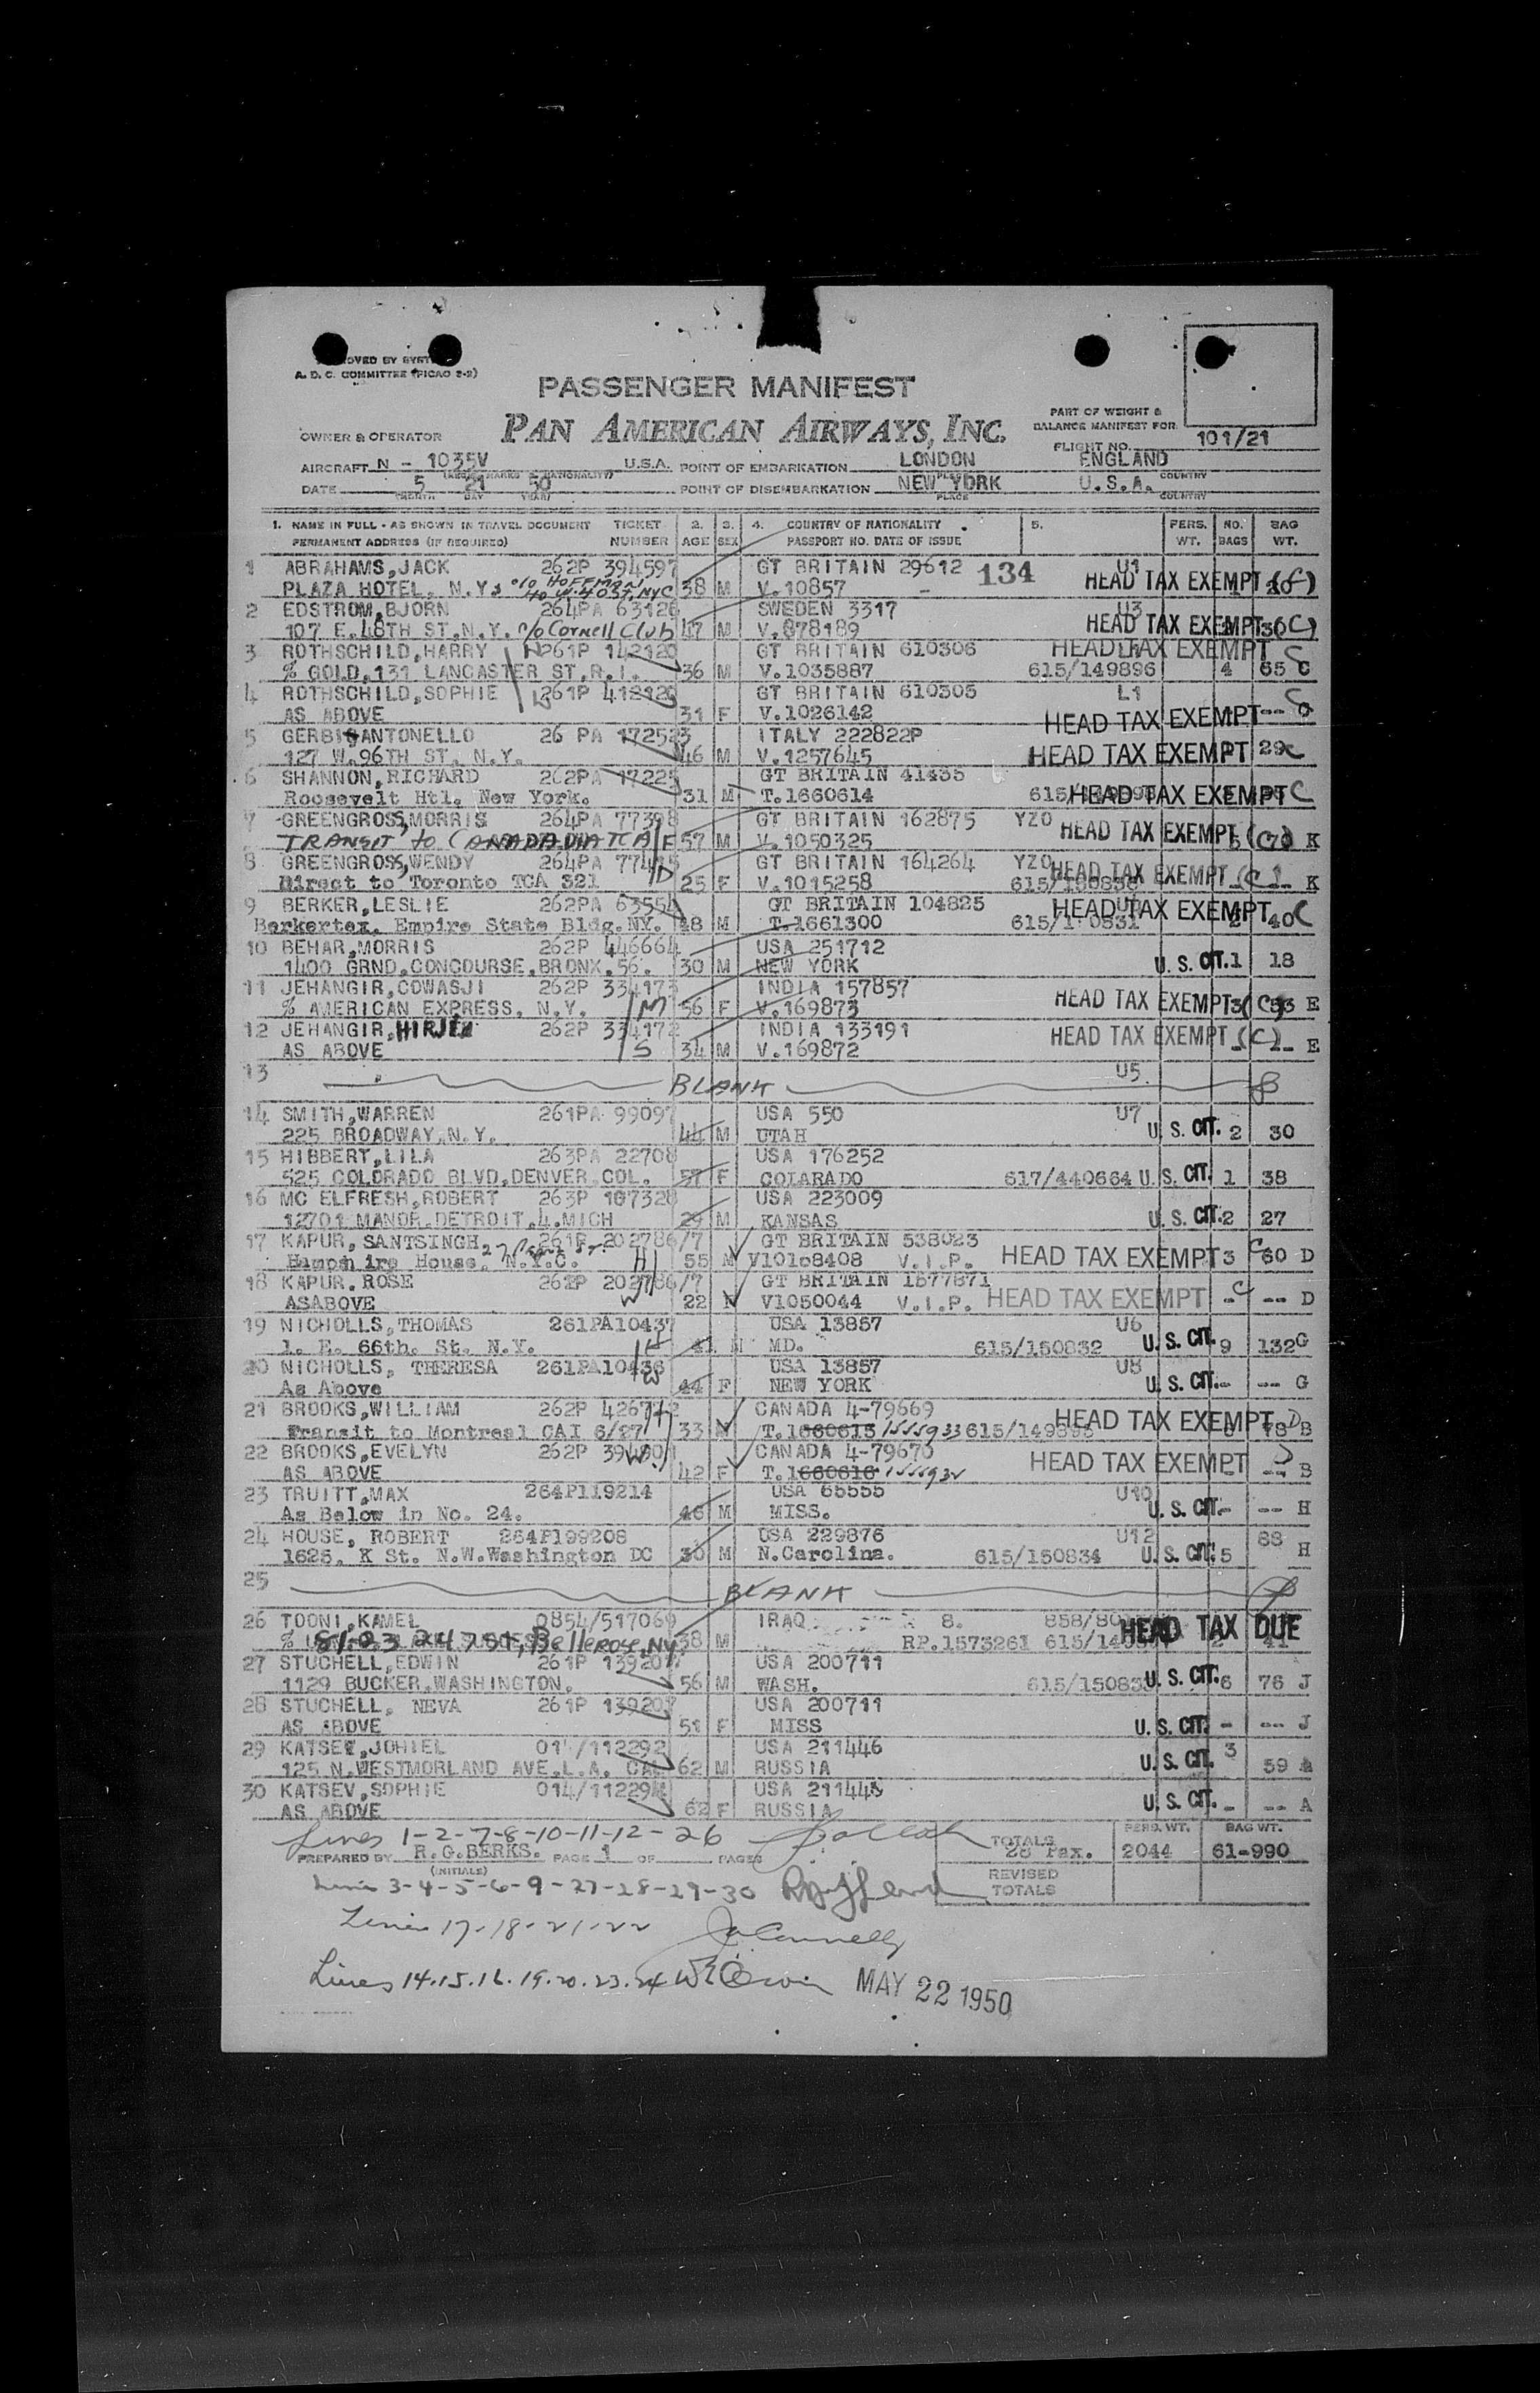 A. D. C. COMMITTEE (FICAO 2-2)
PASSENGER MANIFEST
PAN AMERICAN AIRWAYS, INC.
PART OF WEIGHT &
BALANCE MANIFEST FOR
OWNER & OPERATOR
FLIGHT NO. 101/21
AIRCRAFT N - 1035V U.S.A. POINT OF EMBARKATION LONDON ENGLAND
DATE 5 21 50 POINT OF DISEMBARKATION NEW YORK U.S.A.
1. NAME IN FULL - AS SHOWN IN TRAVEL DOCUMENT TICKET 2. 3. 4. COUNTRY OF NATIONALITY 5. PERS. NO. BAG
PERMANENT ADDRESS (IF REQUIRED) NUMBER AGE SEX PASSPORT NO. DATE OF ISSUE WT. BAGS WT.
1 ABRAHAMS, JACK 262P 394597 GT BRITAIN 29612 134 U1
PLAZA HOTEL, N.Y. c/o HOFFMAN 40 W. 40 St, NYC 38 M V.10857 HEAD TAX EXEMPT
2 EDSTROM, BJORN 264PA 63128 SWEDEN 3317 U3
107 E.48TH ST.N.Y. c/o Cornell Club 47 M V.878189 HEAD TAX EXEMPT (C)
3 ROTHSCHILD, HARRY 261P 142120 GT BRITAIN 610306 HEAD TAX EXEMPT
% GOLD, 131 LANCASTER ST.R.I. 36 M V.1035887 615/149896 4 65 C
4 ROTHSCHILD, SOPHIE W 261P 412120 GT BRITAIN 610305 L1
AS ABOVE 31 F V.1026142 HEAD TAX EXEMPT --
5 GERBI, ANTONELLO 26 PA 172523 ITALY 222822P
127 W.96TH ST. N.Y. 46 M V.1257645 HEAD TAX EXEMPT 29 C
6 SHANNON, RICHARD 262PA 17225 GT BRITAIN 41435
Roosevelt Htl. New York. 31 M T.1660614 HEAD TAX EXEMPT C
7 GREENGROSS, MORRIS 264PA 77398 GT BRITAIN 162875 YZO
TRANSIT to CANADA VIA TCA F 57 M V.1050325 HEAD TAX EXEMPT K
8 GREENGROSS, WENDY 264PA 77415 GT BRITAIN 164264 YZO
Direct to Toronto TCA 321 D 25 F V.1015258 615/150836 HEAD TAX EXEMPT K
9 BERKER, LESLIE 262PA 63554 GT BRITAIN 104825
Berkertex. Empire State Bldg.NY. 48 M T.1661300 HEAD TAX EXEMPT 2 40 C
10 BEHAR, MORRIS 262P 446664 USA 251712
1400 GRND.CONCOURSE.BRONX.56. 30 M NEW YORK U.S. CIT. 1 18
11 JEHANGIR, COWASJI 262P 334173 INDIA 157857
% AMERICAN EXPRESS, N.Y. M 56 F V.169873 HEAD TAX EXEMPT 3 (C) 53 E
12 JEHANGIR, HIRJEE 262P 334172 INDIA 133191
AS ABOVE S 34 M V.169872 HEAD TAX EXEMPT (C) -- E
13 BLANK U5
14 SMITH, WARREN 261PA 99097 USA 550 U7
225 BROADWAY, N.Y. 44 M UTAH U.S. CIT. 2 30
15 HIBBERT, LILA 263PA 22708 USA 176252
525 COLORADO BLVD, DENVER, COL. 57 F COLARADO 617/440664 U.S. CIT. 1 38
16 MC ELFRESH, ROBERT 263P 107328 USA 223009
12701 MANOR, DETROIT, 4. MICH 29 M KANSAS U.S. CIT. 2 27
17 KAPUR, SANTSINGH 261P 202786/7 GT BRITAIN 538023
Hampshire House. N.Y.C. H 55 M V1018408 V.I.P. HEAD TAX EXEMPT 3 C 60 D
18 KAPUR. ROSE 261P 202786/7 GT BRITAIN 1577871
ASABOVE W 22 F V1050044 V.I.P. HEAD TAX EXEMPT - C -- D
19 NICHOLLS, THOMAS 261PA10437 USA 13857 U6
1. E. 66th. St. N.Y. H 41 M MD. 615/150832 U.S. CIT. 9 132 G
20 NICHOLLS, THERESA 261PA10436 USA 13857 U8
As Above W 44 F NEW YORK U.S. CIT. - -- G
21 BROOKS, WILLIAM 262P 426772 CANADA 4-79669
Transit to Montreal CAI 6/27 H 33 M T.1660613 1555933 615/149895 HEAD TAX EXEMPT D 78 B
22 BROOKS, EVELYN 262P CANADA 4-79670
AS ABOVE W 42 F T.1660616 1555932 HEAD TAX EXEMPT -- B
23 TRUITT, MAX 264P119214 USA 65555 U10
As Below in No. 24. 46 M MISS. U.S. CIT. - -- H
24 HOUSE, ROBERT 264P199208 USA 229876 U12 88
1625. K St. N.W.Washington DC 30 M N.Carolina. 615/150834 U.S. CIT. 5 H
25 BLANK
26 TOONI, KAMEL 0854/517069 IRAQ 8.
81-03 247 St, Bellerose, NY, 38 M RP.1573261 HEAD TAX DUE 2 41
27 STUCHELL, EDWIN 261P 139207 USA 200711
1129 BUCKER, WASHINGTON. 56 M WASH. U.S. CIT. 6 76 J
28 STUCHELL, NEVA 261P 139207 USA 200711
AS ABOVE 51 F MISS U.S. CIT. - -- J
29 KATSEV, JOHIEL 014/112292 USA 211446
125 N.WESTMORLAND AVE.L.A. CAL 62 M RUSSIA U.S. CIT. 3 59 A
30 KATSEV, SOPHIE 014/112294 USA 211445
AS ABOVE 62 F RUSSIA U.S. CIT. - -- A
Lines 1-2-7-8-10-11-12-26
PERS. WT. BAG WT.
PREPARED BY R.G.BERKS. PAGE 1 OF PAGES TOTALS 28 Pax. 2044 61-990
(INITIALS)
REVISED TOTALS
Lines 3-4-5-6-9-27-28-29-30
Lines 17-18-21-22 JaConnelly
Lines 14.15.16.19.20.23.24
MAY 22 1950